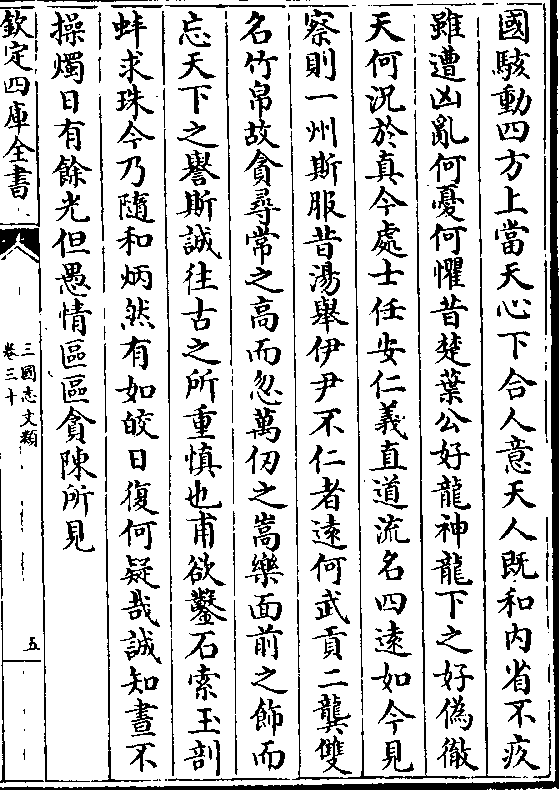 國駭動四方上當天心下合人意天人既和内省不疚
雖遭凶亂何憂何懼昔楚葉公好龍神龍下之好偽徹
天何況於真今處士任安仁義直道流名四逺如今見
察則一州斯服昔湯舉伊尹不仁者逺何武貢二龔雙
名竹帛故貪尋常之高而忽萬仞之嵩樂面前之飾而
忘天下之譽斯誠往古之所重慎也甫欲鑿石索玉剖
蚌求珠今乃隨和炳然有如皎日復何疑哉誠知晝不
操燭日有餘光但愚情區區貪陳所見
欽定四庫全書
三國志文類
卷三十
五